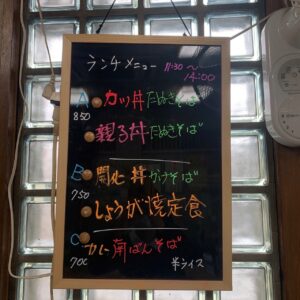 ランチメニュー 11:30～14:00
A カツ丼 たぬきそば
850
親子丼 たぬきそば
B 開化丼 かけそば
750
しょうが焼定食
C カレー南ばんそば
700
半ライス